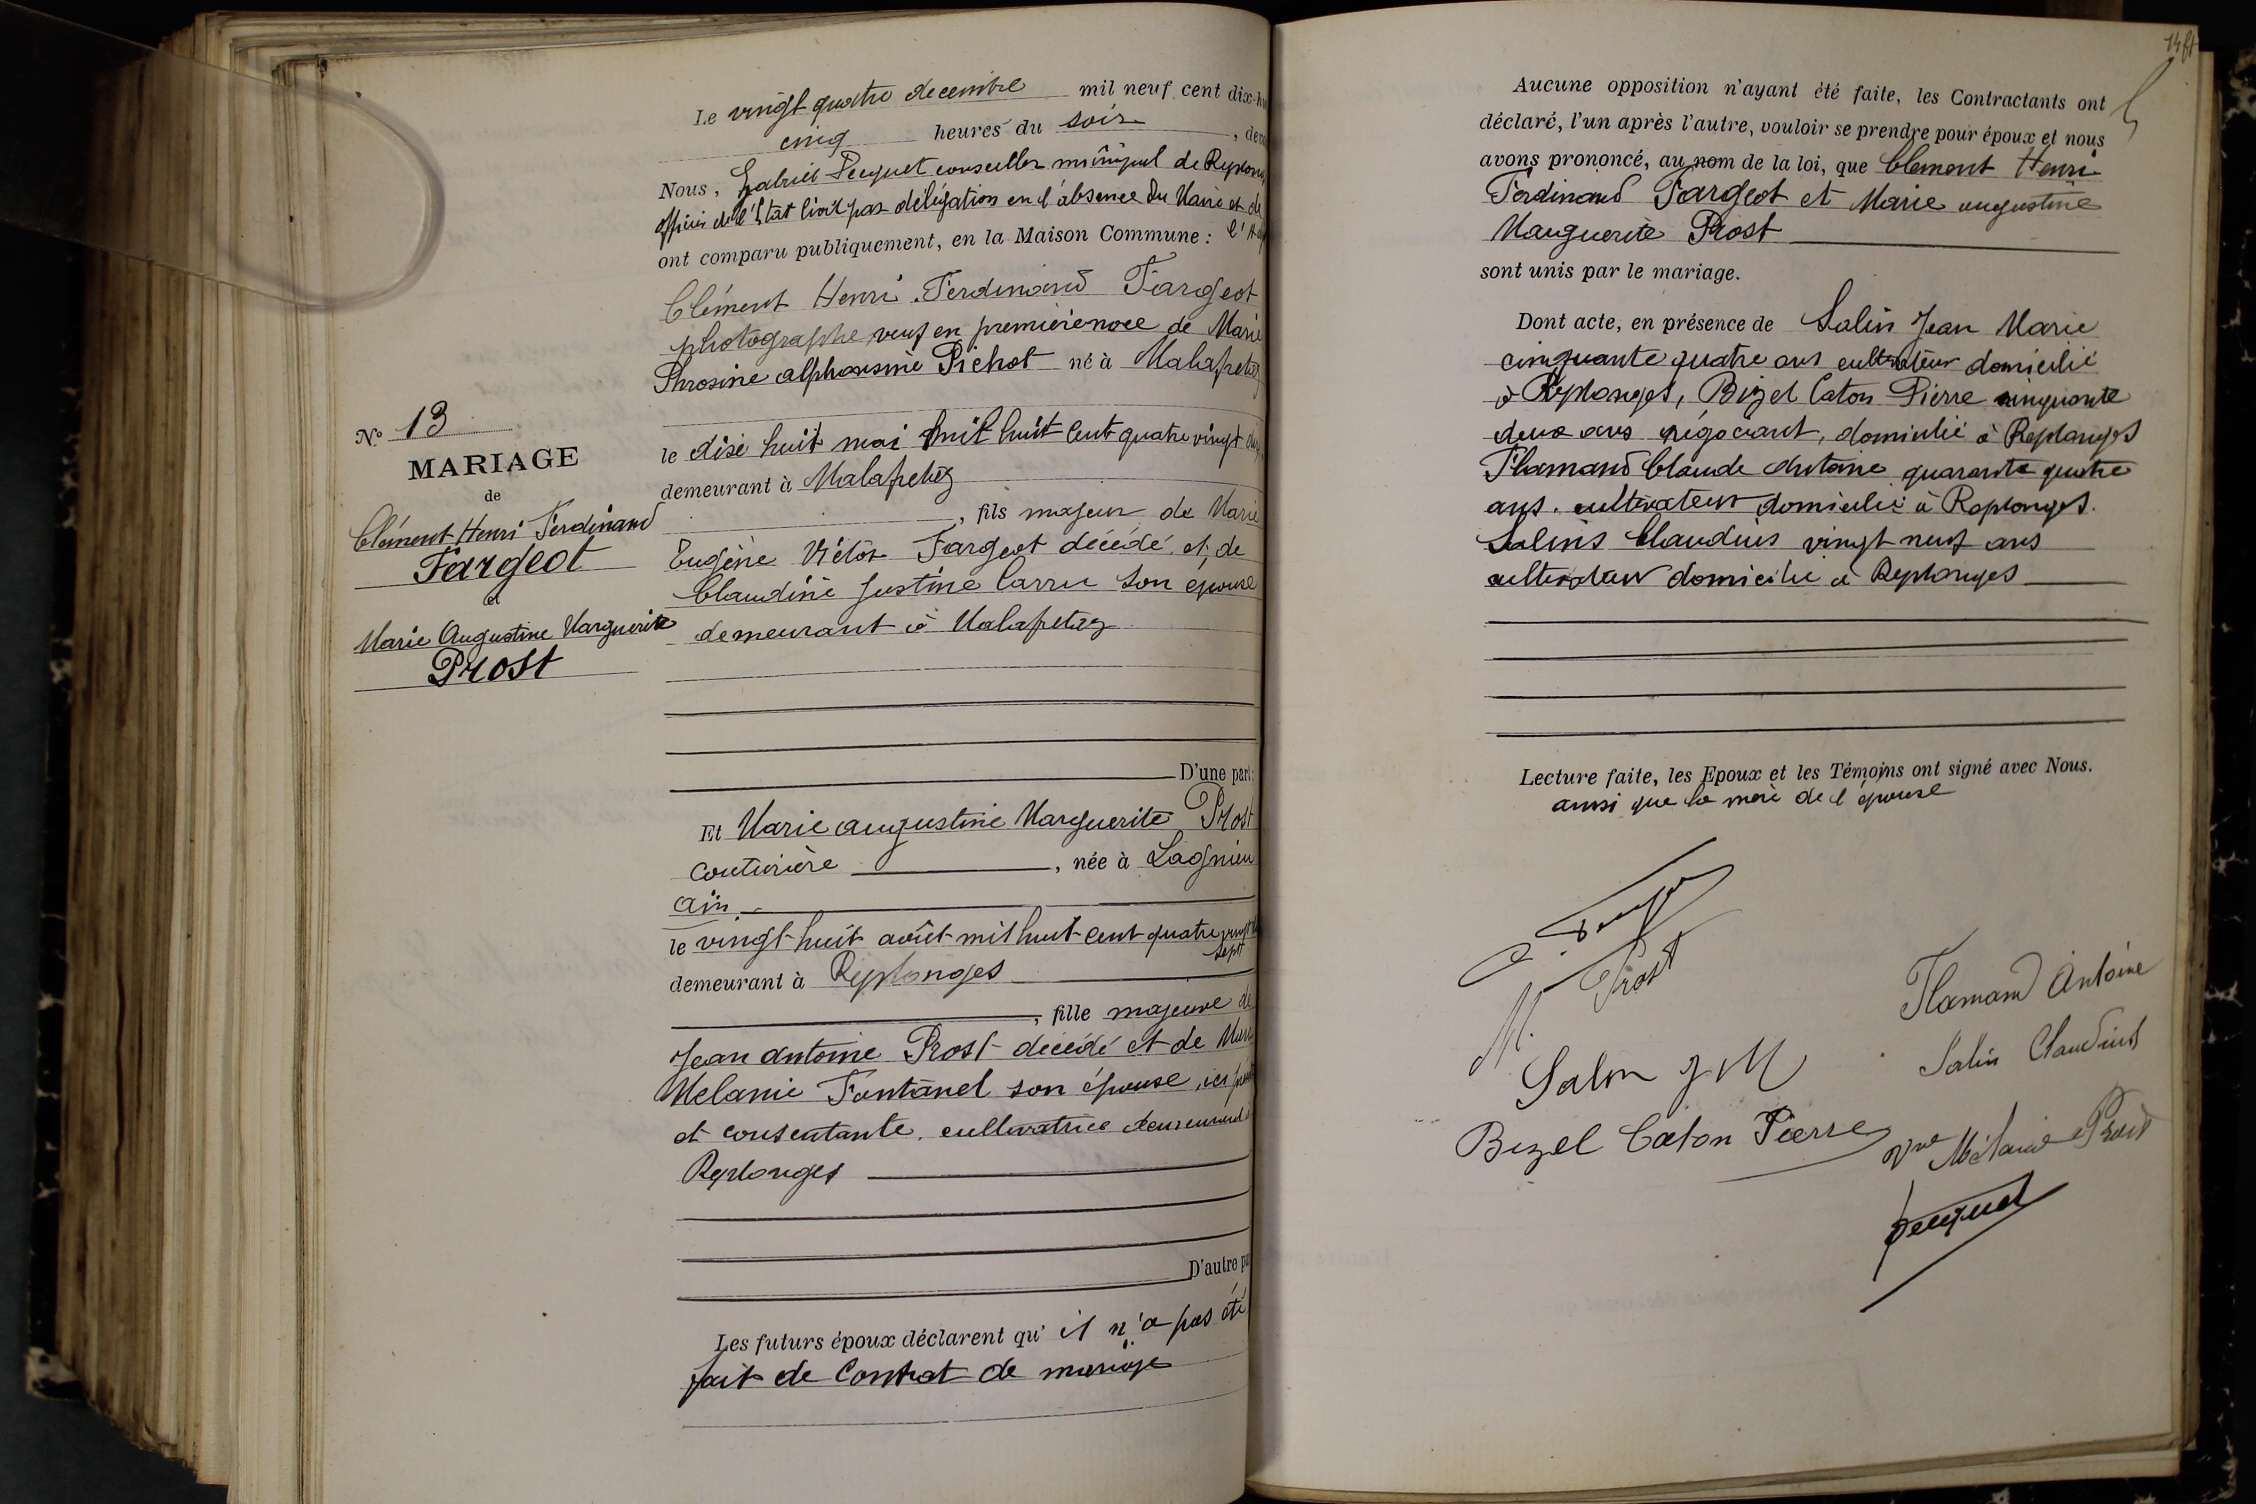 Le vingt quatre decembre mil neuf cent dix-hu
cinq heures du soir, deva
Nous, Gabriel Pecquet conseiller municipal de Replonges
officier de l'Etat Civil par délégation en l'absence du Maire et de
l'A
ont comparu publiquement, en la Maison Commune :
Clément Henri Ferdinand Fargeot
photographe veuf en première noce de Marie
Phrosine alphonsine Pichot né à Malafretaz
N° 13
MARIAGE
de
Clément Henri Ferdinand
Fargeot
et
Marie Augustine Marguerite
Prost
le dise huit mai mil huit cent quatre vingt
demeurant à Malafretaz
, fils majeur de Marie
Eugène Victor Fargeot décédé et de
Claudine Justine Carru son epouse
demeurant à Malafretaz
D'une part :
Et Marie augustine Marguerite Prost
couturière, née à Lagnieu
ain
le vingt huit août mil huit cent quatre vingt
sept
demeurant à Replonges
, fille majeure de
Jean antoine Prost décédé et de Marie
Melanie Fontanel son épouse, ici
et consentante. cultivatrice demeurant
Replonges
D'autre pa
Les futurs époux déclarent qu' il n'a pas été
fait de Contrat de mariage
Aucune opposition n'ayant été faite, les Contractants ont
déclaré, l'un après l'autre, vouloir se prendre pour époux et nous
avons prononcé, au nom de la loi, que Clement Henri
Ferdinand Fargeot et Marie augustine
Marguerite Prost
sont unis par le mariage.
Dont acte, en présence de Salin Jean Marie
cinquante quatre ans cultivateur domicilié
à Replonges, Bizel Caton Pierre cinquante
deux ans négociant, domicilié à Replonges
Flamand Claude Antoine quarante quatre
ans. cultivateur domicilié à Replonges.
Salins Claudius vingt neuf ans
cultivateur domicilié à Replonges
Lecture faite, les Epoux et les Témoins ont signé avec Nous.
ainsi que la mère de l'épouse
M. Prost
Flamand Antoine
Salin J M
Salin Claudius
Bizel Caton Pierre
Vve Mélanie Prost
Pecquet